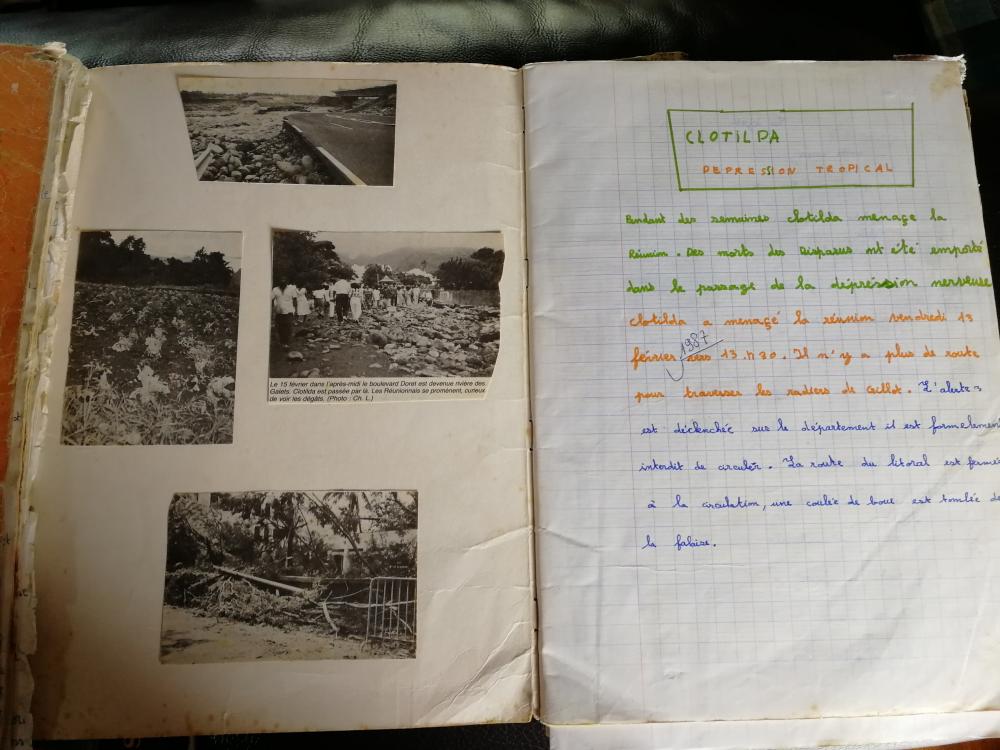 Le 15 février dans l'après-midi le boulevard Doret est devenue rivière des
Galets. Clotilda est passée par là. Les Réunionnais se promènent, curieux
de voir les dégâts. (Photo : Ch. L.)
CLOTILDA
DEPRESSION TROPICAL
Pendant des semaines Clotilda menaçe la
Réunion. Des morts des Disparus nt été emporté
dans le passage de la dépréssion nerveuse
Clotilda a menaçé la réunion vendredi 13
1987
février vers 13 h 30. Il n'y a plus de route
pour traverser les radiers de Gillot. L'alerte 3
est déclenchée sur le département il est formelement
interdit de circuler. La route du litoral est fermée
à la circulation, une coulée de boue est tombée de
la falaise.